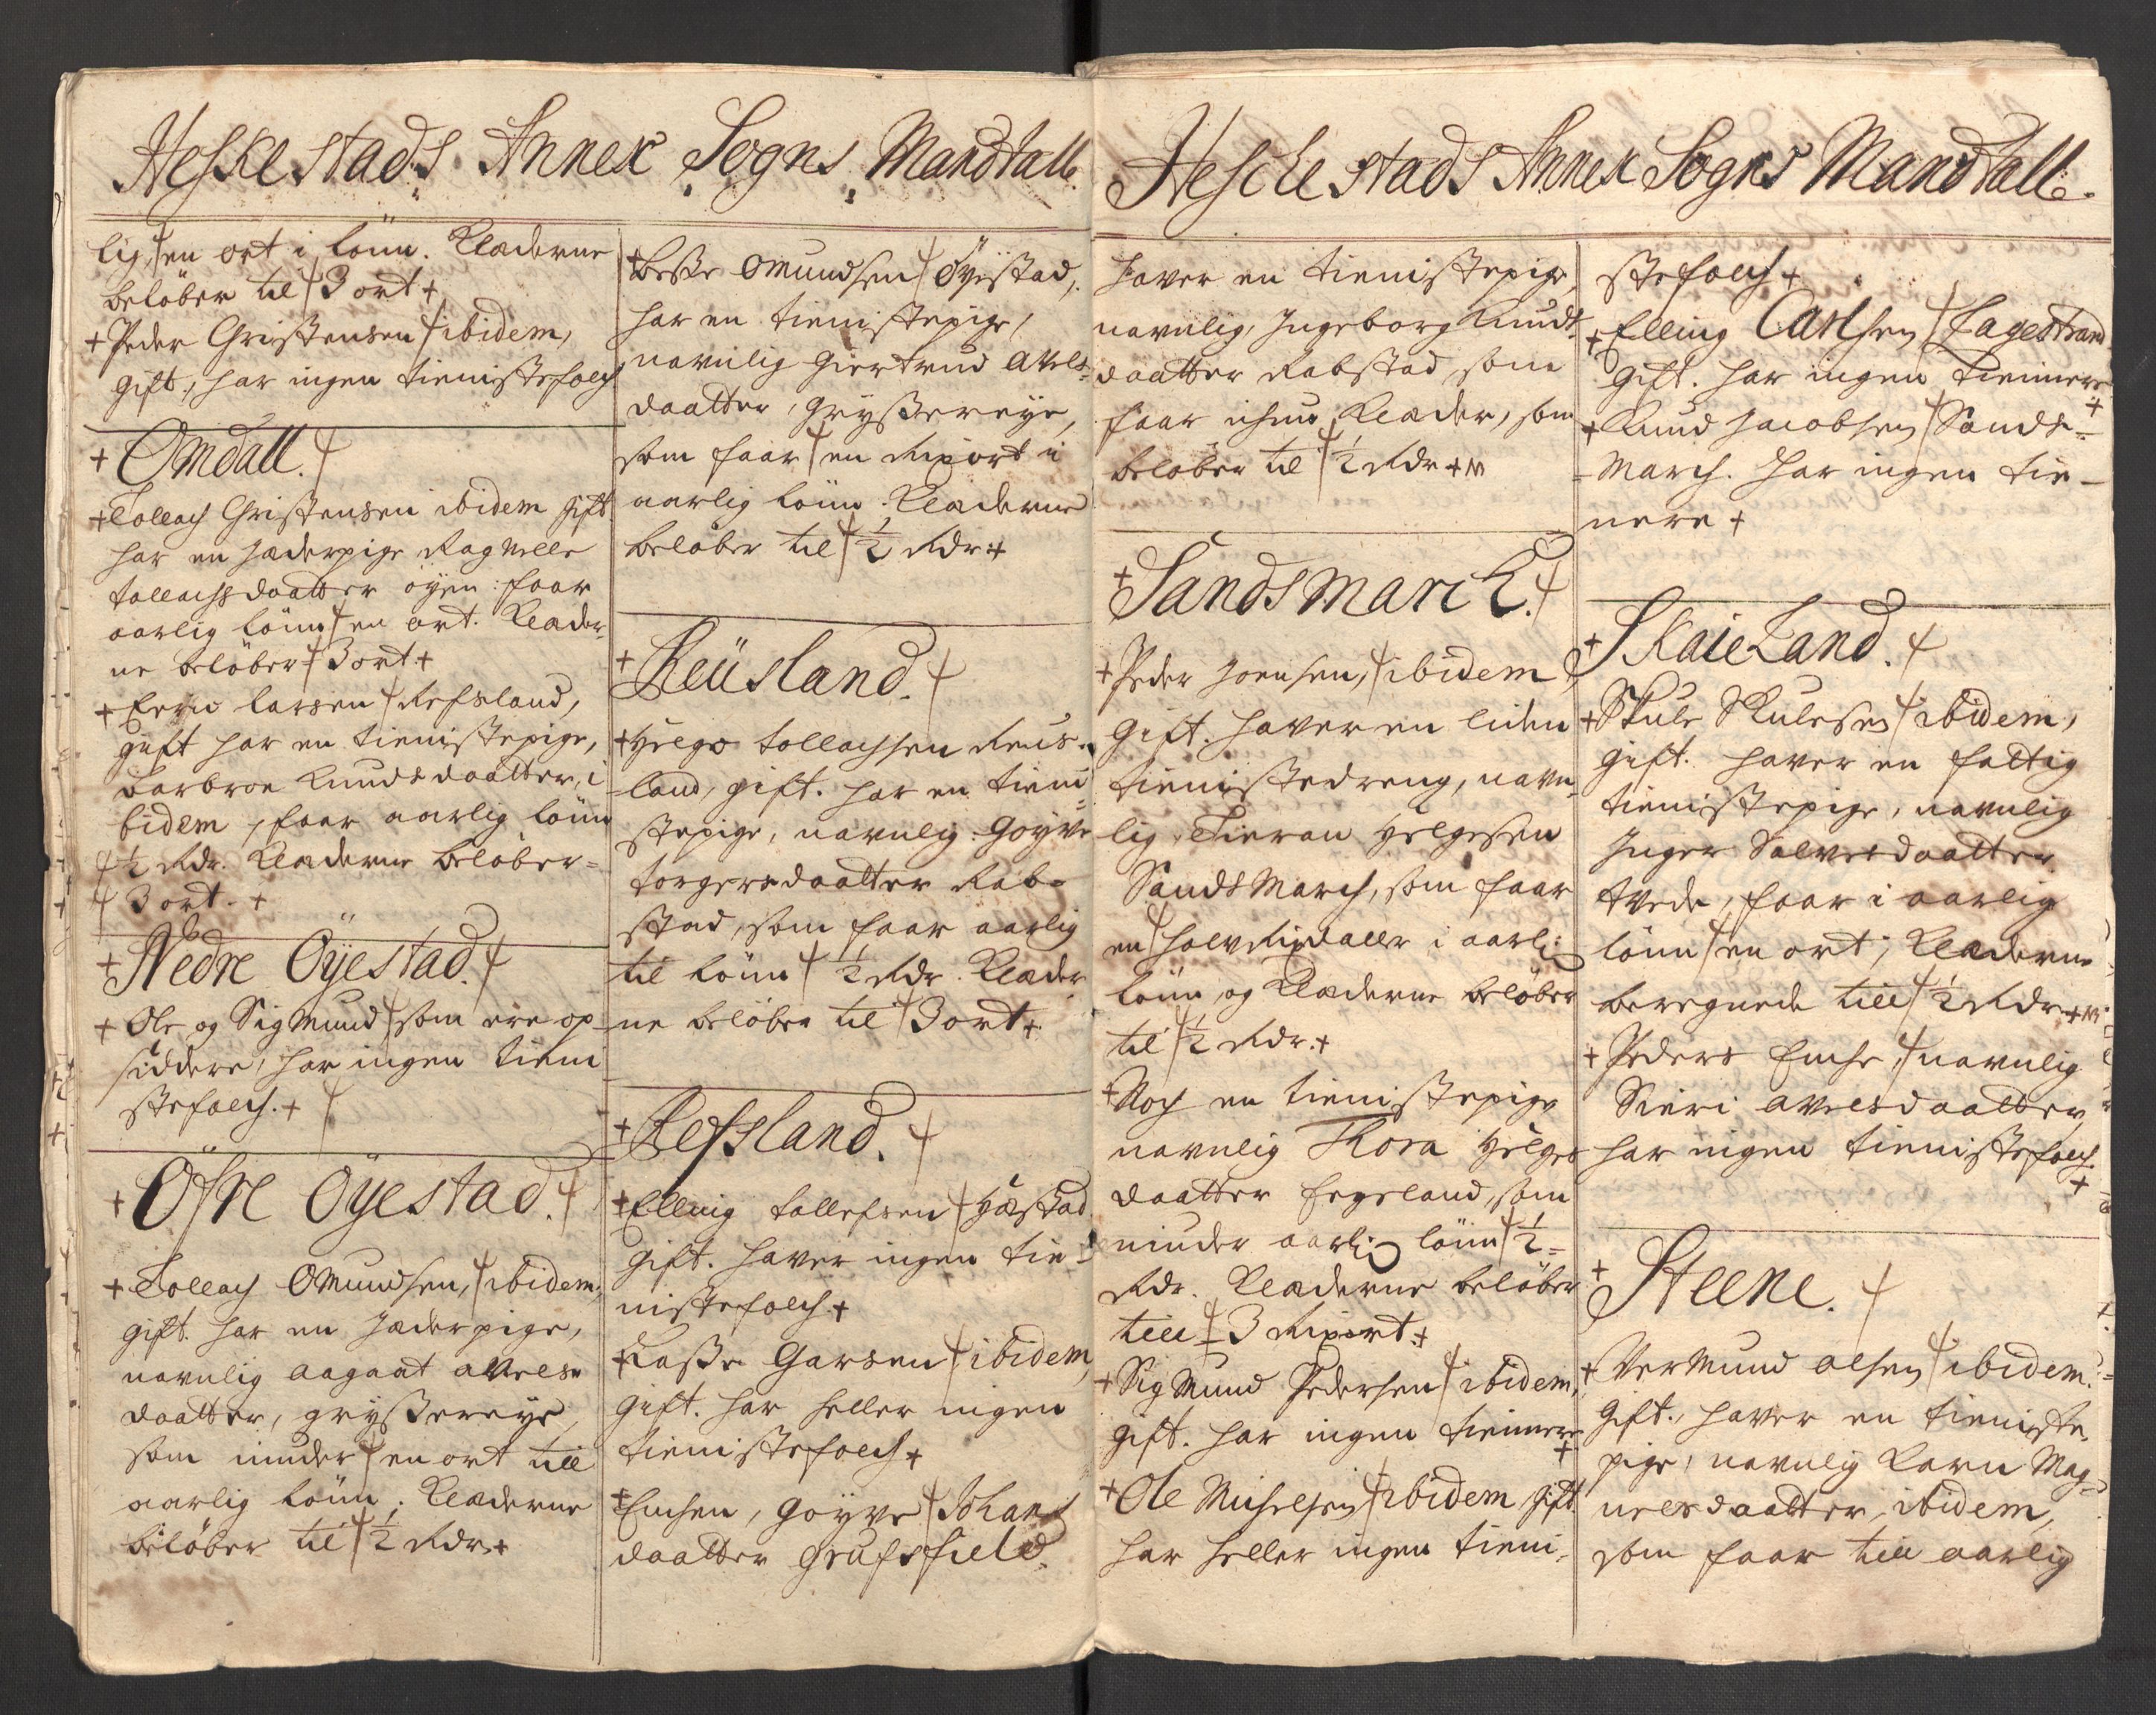 Heskestads Annex Sogns Mandtall.
lig, en ort i lönn. Klæderne
beløber til 3 ort +
+ Peder Christensen ibidem,
gift, har ingen tienistefolch
+ Omdall.
+ Tollach Christensen ibidem gift
har en Jæderpige Ragnelle
tollachsdaatter öyen: faar
aarlig lönn en ort. Klæder-
ne beløber 3 ort +
+ Larsen Refsland,
gift har en tienistepige,
barbroe Knudsdaatter, i
bidem, faar aarlig lönn
½ Rdr. Klæderne beløber=
3 ort. +
+ Nedre Öyestad.
+ Ole og Sigmund som ere op-
siddere, har ingen tieni
stefolch. +
+ Öfre Öyestad.
+ Tollach Omundsen, ibidem,
gift. har en Jæderpige,
navnlig aagaat avels-
daatter, gryssereye,
som niuder en ort till
aarlig lönn. Klæderne
beløber til ½ Rdr. +
+ Besse Omundsen Öyestad,
har en tienistepige,
navnlig giertrud avels=
daatter, gryssereye,
som faar en Rixort i
aarlig lönn. Klæderne
beløber til ½ Rdr +
+ Reüsland.
+ Helge tollachsen Reus-
land, gift. har en tieni=
stepige, navnlig: Goyve
torgersdaatter Rab-
stad, som faar aarlig
til lönn ½ Rdr. Klæder
ne beløber til 3 ort +
+ Refsland.
+ Elling tollefsen
gift. haver ingen tie-
nistefolch. +
+ Lasse Garsen ibidem,
gift. har heller ingen
tienistefolch +
+ Enchen, goyve Johans
daatter
Heschestads Annex Sogns Mandtall.
haver en tienistepige,
navnlig, Ingeborg Knuds-
daatter Rabstad, som
faar ickun Klæder, som
beløber til ½ Rdr +
+ Sandsmarck.
+ Peder Joensen, ibidem
gift. haver en liden
tienistedreng, navn-
lig Helgesen
Sandsmarch, som faar
en halv Rixdaler i aarlig
lönn, og Klæderne beløber
til ½ Rdr. +
+ Noch en tienistepige
navnlig Thora Helges
daatter Eegeland, som
niuder aarlig lönn ½=
Rdr. Klæderne beløber
till 3 Rixort +
+ Sigmund Pedersen ibidem,
gift. har ingen tiennere
+
+ Ole Michelsen ibidem gift
har heller ingen tieni-
stefolch +
+ Elling Carlsen Eagestrand
gift. har ingen tiennere
+
+ Knud Jacobsen Sands=
=march. har ingen tie-
nere +
+ Skaieland.
+ Skule Skulesen ibidem,
gift. haver en fattig
tienistepige, navnlig
Inger Salvesdaatter
tvede, faar i aarlig
lönn en ort; Klæderne
beregnede till ½ Rdr +
+ Peders Enche, navnlig
Siri avelsdaatter,
har ingen tienistefolch.
+
+ Steene.
+ Vermund olsen ibidem.
gift., haver en tieniste-
pige, navnlig Karn Mag=
nesdaatter, ibidem,
som faar till aarlig